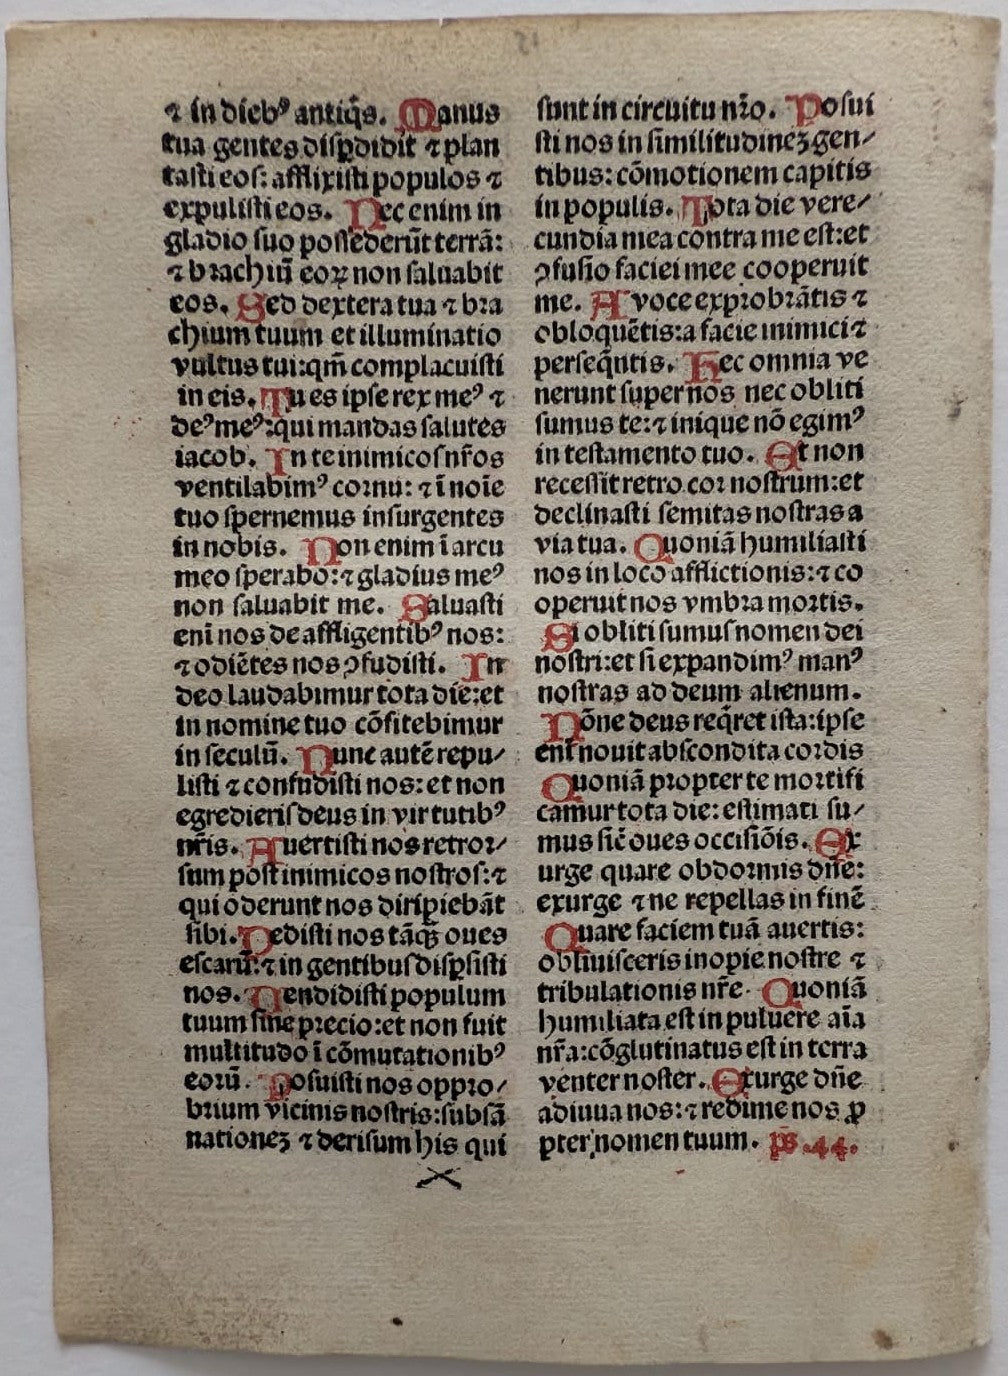 ⁊ in dieb⁹ antiq̄s. Manus
tua gentes disꝑdidit ⁊ plan
tasti eos: afflixisti populos ⁊
expulisti eos. Nec enim in
gladio suo possederūt terrā:
⁊ brachiū eoꝝ non saluabit
eos. Sed dextera tua ⁊ bra
chium tuum et illuminatio
vultus tui: qm̄ complacuisti
in eis. Tu es ipse rex me⁹ ⁊
de⁹ me⁹: qui mandas salutes
iacob. In te inimicos nr̄os
ventilabim⁹ cornu: ⁊ ī noīe
tuo spernemus insurgentes
in nobis. Non enim ī arcu
meo sperabo: ⁊ gladius me⁹
non saluabit me. Saluasti
enī nos de affligentib⁹ nos:
⁊ odiētes nos ꝯfudisti. In
deo laudabimur tota die: et
in nomine tuo cōfitebimur
in seculū. Nunc autē repu/
listi ⁊ confudisti nos: et non
egredieris deus in virtutib⁹
nr̄is. Auertisti nos retror/
sum post inimicos nostros: ⁊
qui oderunt nos diripiebāt
sibi. Dedisti nos tāqꝫ oues
escarū: ⁊ in gentibus disꝑsisti
nos. Vendidisti populum
tuum sine precio: et non fuit
multitudo ī cōmutationib⁹
eorū. Posuisti nos oppro/
brium vicinis nostris: subsā
nationeꝫ ⁊ derisum his qui
sunt in circuitu nr̄o. Posui
sti nos in similitudineꝫ gen/
tibus: cōmotionem capitis
in populis. Tota die vere/
cundia mea contra me est: et
ꝯfusio faciei mee cooperuit
me. A voce exprobrātis ⁊
obloquētis: a facie inimici ⁊
perseqn̄tis. Hec omnia ve
nerunt super nos nec obliti
sumus te: ⁊ inique nō egim⁹
in testamento tuo. Et non
recessit retro cor nostrum: et
declinasti semitas nostras a
via tua. Quoniā humiliasti
nos in loco afflictionis: ⁊ co
operuit nos vmbra mortis.
Si obliti sumus nomen dei
nostri: et si expandim⁹ man⁹
nostras ad deum alienum.
Nōne deus req̄ret ista: ipse
enī nouit abscondita cordis
Quoniā propter te mortifi
camur tota die: estimati su/
mus sic̄ oues occisiōis. Ex
urge quare obdormis dn̄e:
exurge ⁊ ne repellas in finē
Quare faciem tuā auertis:
obliuisceris inopie nostre ⁊
tribulationis nr̄e. Quoniā
humiliata est in puluere aīa
nr̄a: cōglutinatus est in terra
venter noster. Exurge dn̄e
adiuua nos: ⁊ redime nos ꝓ
pter nomen tuum. ps .44.